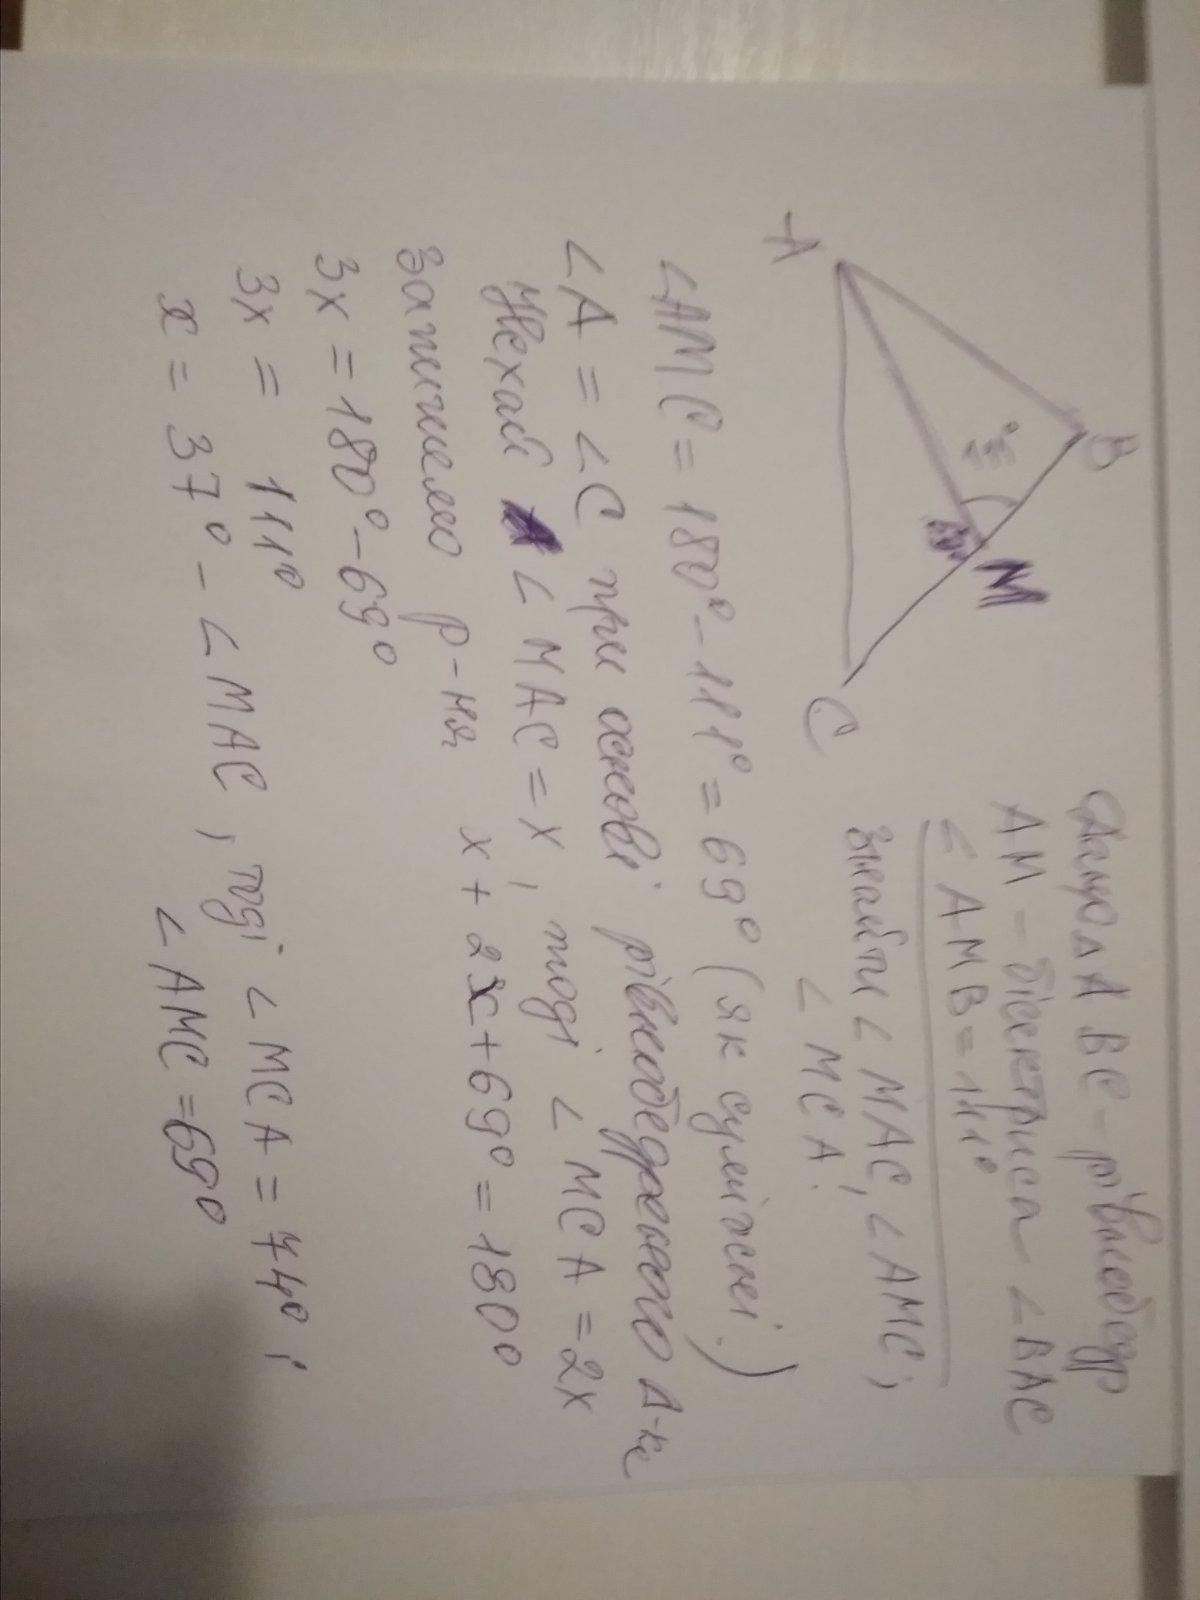 B
A
M
C
111°
69°
Дано Δ ABC - рівнобедр
AM - бісектриса ∠BAC
∠AMB = 111°
Знайти ∠MAC, ∠AMC,
∠MCA.
∠AMC = 180° - 111° = 69° (як суміжні.)
∠A = ∠C при основі рівнобедреного Δ-ка
Нехай ∠MAC = x, тоді ∠MCA = 2x
Запишемо р-ня x + 2x + 69° = 180°
3x = 180° - 69°
3x = 111°
x = 37° - ∠MAC, тоді ∠MCA = 74°;
∠AMC = 69°